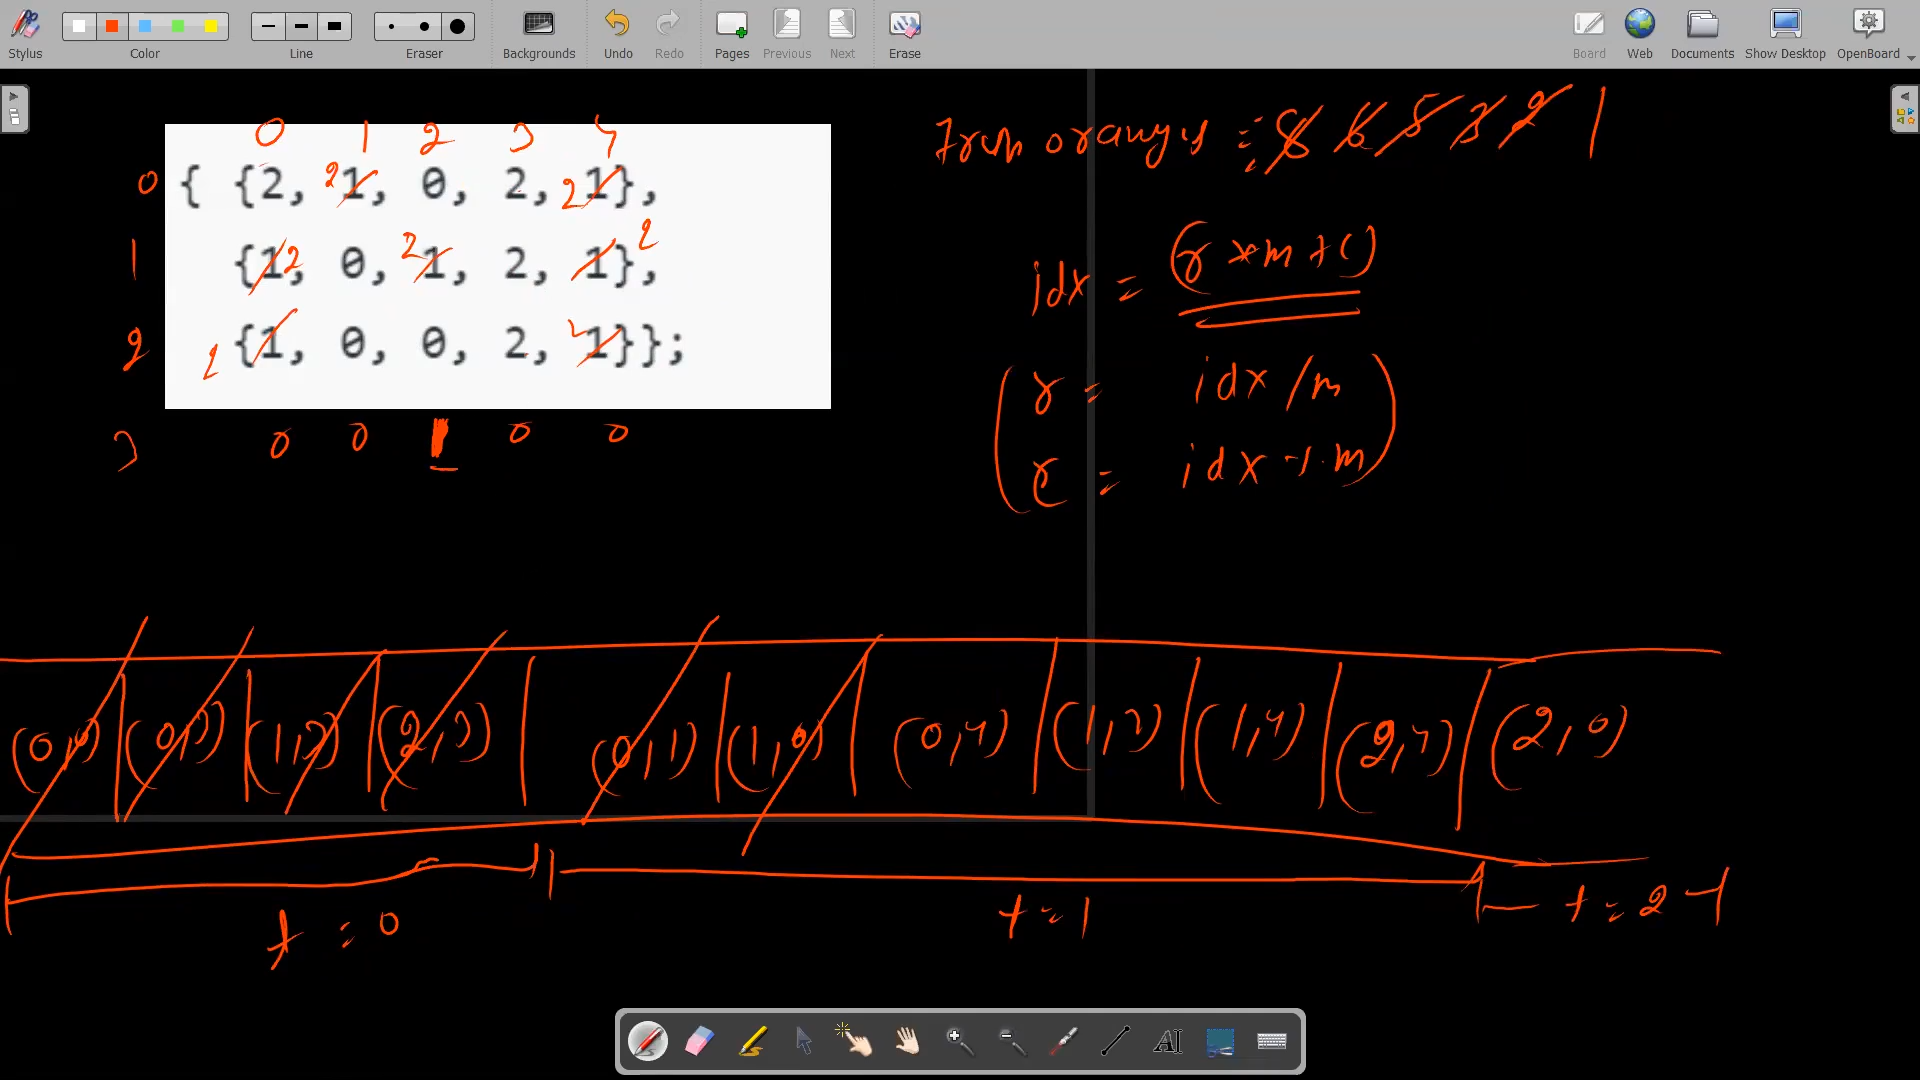 Stylus Color Line Eraser Backgrounds Undo Redo Pages Previous Next Erase Board Web Documents Show Desktop OpenBoard
0 1 2 3 4
0 { {2, 2 1, 0, 2, 2 1},
1 {1 2, 0, 2 1, 2, 1}, 2
2 2 {1, 0, 0, 2, 2 1}};
3 0 0 1 0 0
Fresh oranges = 8 6 5 3 2 1
idx = (r * m + c)
r = idx / m
c = idx % m
(0,0) (0,3) (1,3) (2,3) (0,1) (1,0) (0,4) (1,2) (1,4) (2,4) (2,0)
t = 0 t = 1 t = 2